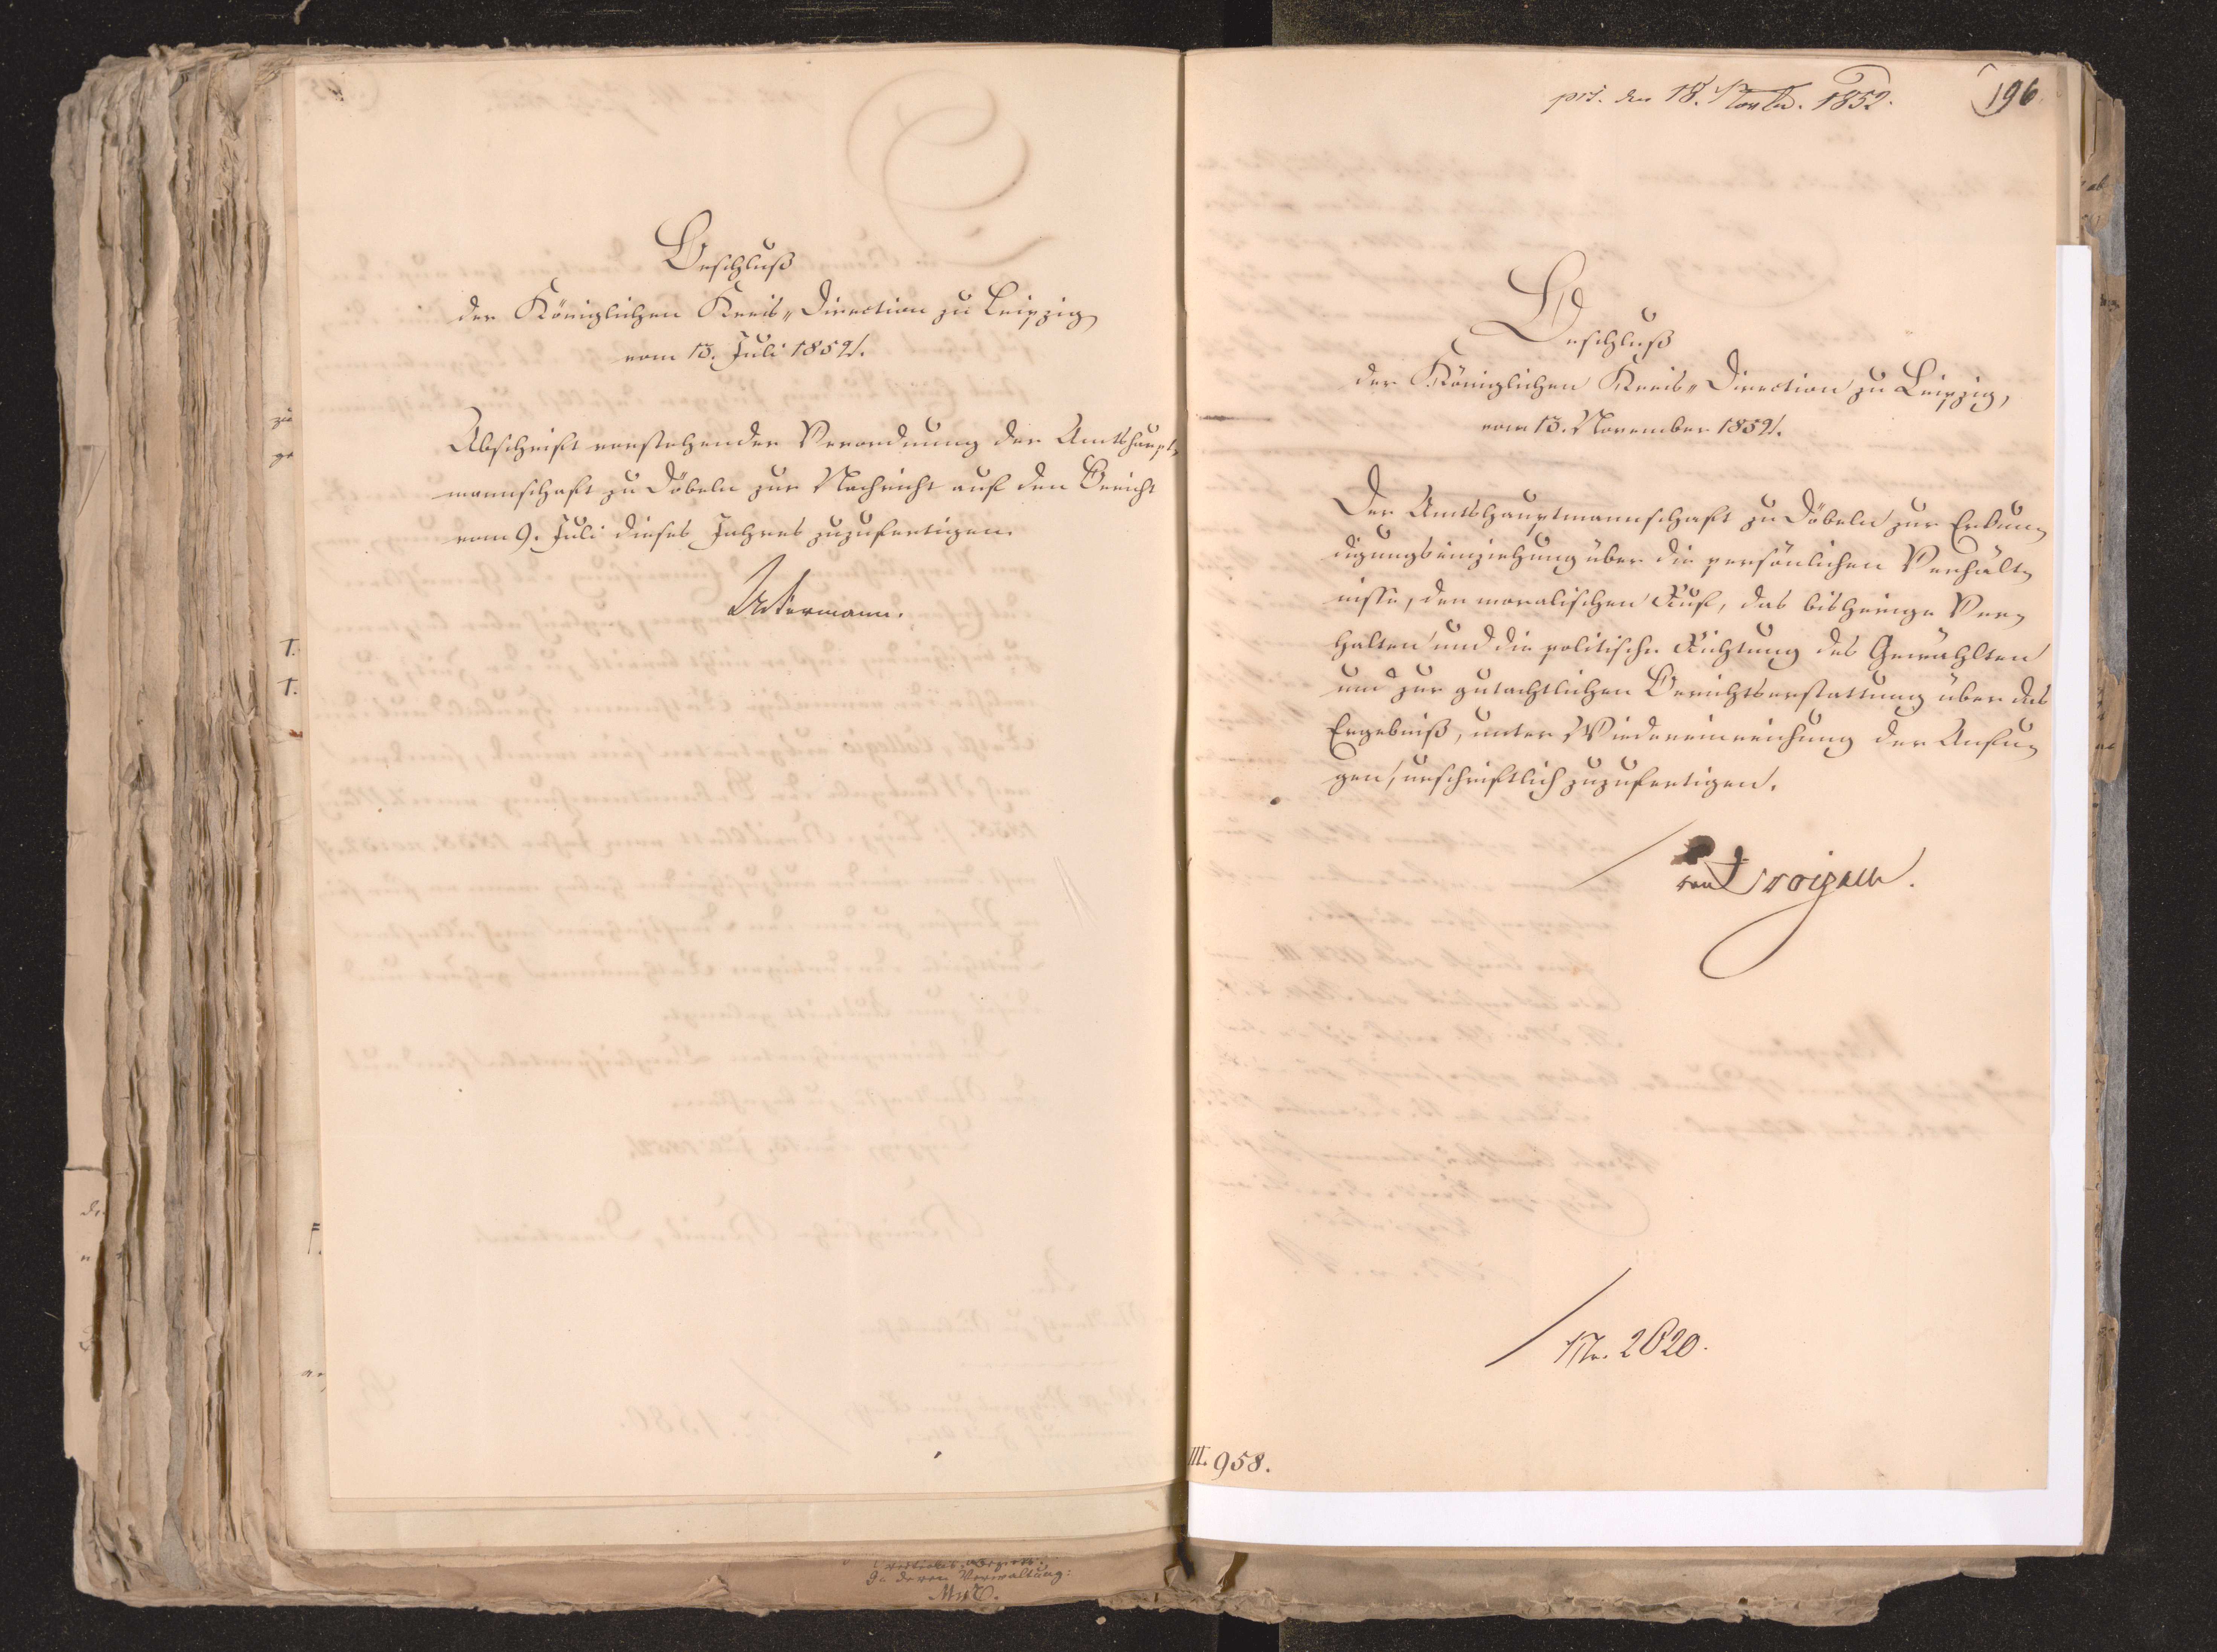 Beschluß
der Königlichen Kreis-Direction zu Leipzig
vom 13. Juli 1852.
Abschrift vorstehender Verordnung der Amtshaupt-
mannschaft zu Döbeln zur Nachricht auf den Bericht
vom 9. Juli dieses Jahres zuzufertigen.
Ackermann.
prs. den 18. Novbr. 1852.
196
Beschluß
der Königlichen Kreis-Direction zu Leipzig,
vom 13. November 1852.
Der Amtshauptmannschaft zu Döbeln zur Erkun-
digungseinziehung über die persönlichen Verhält-
nisse, den moralischen Ruf, das bisherige Ver-
halten und die politische Richtung des Gewählten
und zur gutachtlichen Berichtserstattung über das
Ergebniß, unter Wiedereinreichung der Anfu-
gen, urschriftlich zuzufertigen.
von Broizem.
Nr. 2820.
III. 958.
Verwaltung: